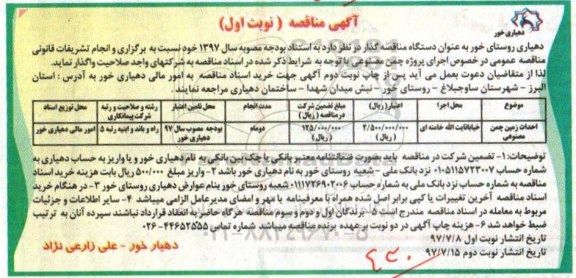 آگهی مناقصه ( نوبت اول)
دهیاری خور
دهیاری روستای خور به عنوان دستگاه مناقصه گذار در نظر دارد به استناد بودجه مصوبه سال ۱۳۹۷ خود نسبت به برگزاری و انجام تشریفات قانونی
مناقصه عمومی در خصوص اجرای پروژه چمن مصنوعی با توجه به شرایط ذکر شده در اسناد مناقصه به شرکتهای واجد صلاحیت واگذار نماید.
لذا از متقاضیان دعوت بعمل می آید پس از چاپ نوبت دوم آگهی جهت خرید اسناد مناقصه به امور مالی دهیاری خور به آدرس : استان
البرز - شهرستان ساوجبلاغ - روستای خور - نبش میدان شهدا - ساختمان دهیاری مراجعه نمایند.
موضوع محل اجرا اعتبار( ریال) مبلغ تضمین شرکت در مناقصه ( ریال) مدت انجام محل تامین اعتبار رشته و صلاحیت و رتبه شرکت پیمانکاری محل توزیع اسناد
احداث زمین چمن مصنوعی خیابانایت الله خامنه ای ۲/۵۰۰/۰۰۰/۰۰۰ ۱۲۵/۰۰۰/۰۰۰ دوماه بودجه مصوب سال ۹۷ دهیاری خور راه و باند و ابنیه رتبه ۵ امور مالی دهیاری خور
توضیحات: ۱- تضمین شرکت در مناقصه باید بصورت ضمانتنامه معتبر بانکی یا چک بین بانکی به نام دهیاری خور و یا واریز به حساب دهیاری به
شماره حساب ۰۱۰۵۱۱۵۷۲۳۰۰۷ نزد بانک ملی - شعبه روستای خور به نام دهیاری خور باشد ۲- واریز مبلغ ۵۰۰/۰۰۰ ریال بابت هزینه خرید اسناد
مناقصه به شماره حساب نزد بانک ملی به شماره حساب ۰۱۱۱۷۲۶۹۰۲۰۰۶ شعبه روستای خور بنام عوارض دهیاری روستای خور ۳- در هنگام خرید
اسناد مناقصه آخرین تغییرات یا کپی برابر اصل شده همراه با معرفینامه با مهر و امضای مدیرعامل الزام میباشد ۴- سایر اطلاعات و جزئیات
مربوط به معامله در اسناد مناقصه مندرج است ۵- برندگان اول و دوم و سوم مناقصه هرگاه حاضر به انعقاد قرارداد نباشند سپرده آنان به ترتیب
ضبط خواهد شد ۶- هزینه چاپ آگهی در دو نوبت بر عهده برنده مناقصه میباشد شماره تماس ۴۴۶۵۲۵۵۵-۰۲۶
تاریخ انتشار نوبت اول ۹۷/۷/۸
تاریخ انتشار نوبت دوم ۹۷/۷/۱۵
دهیار خور - علی زارعی نژاد